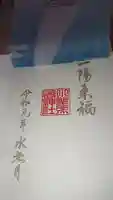 一陽来福
令和元年 水無月